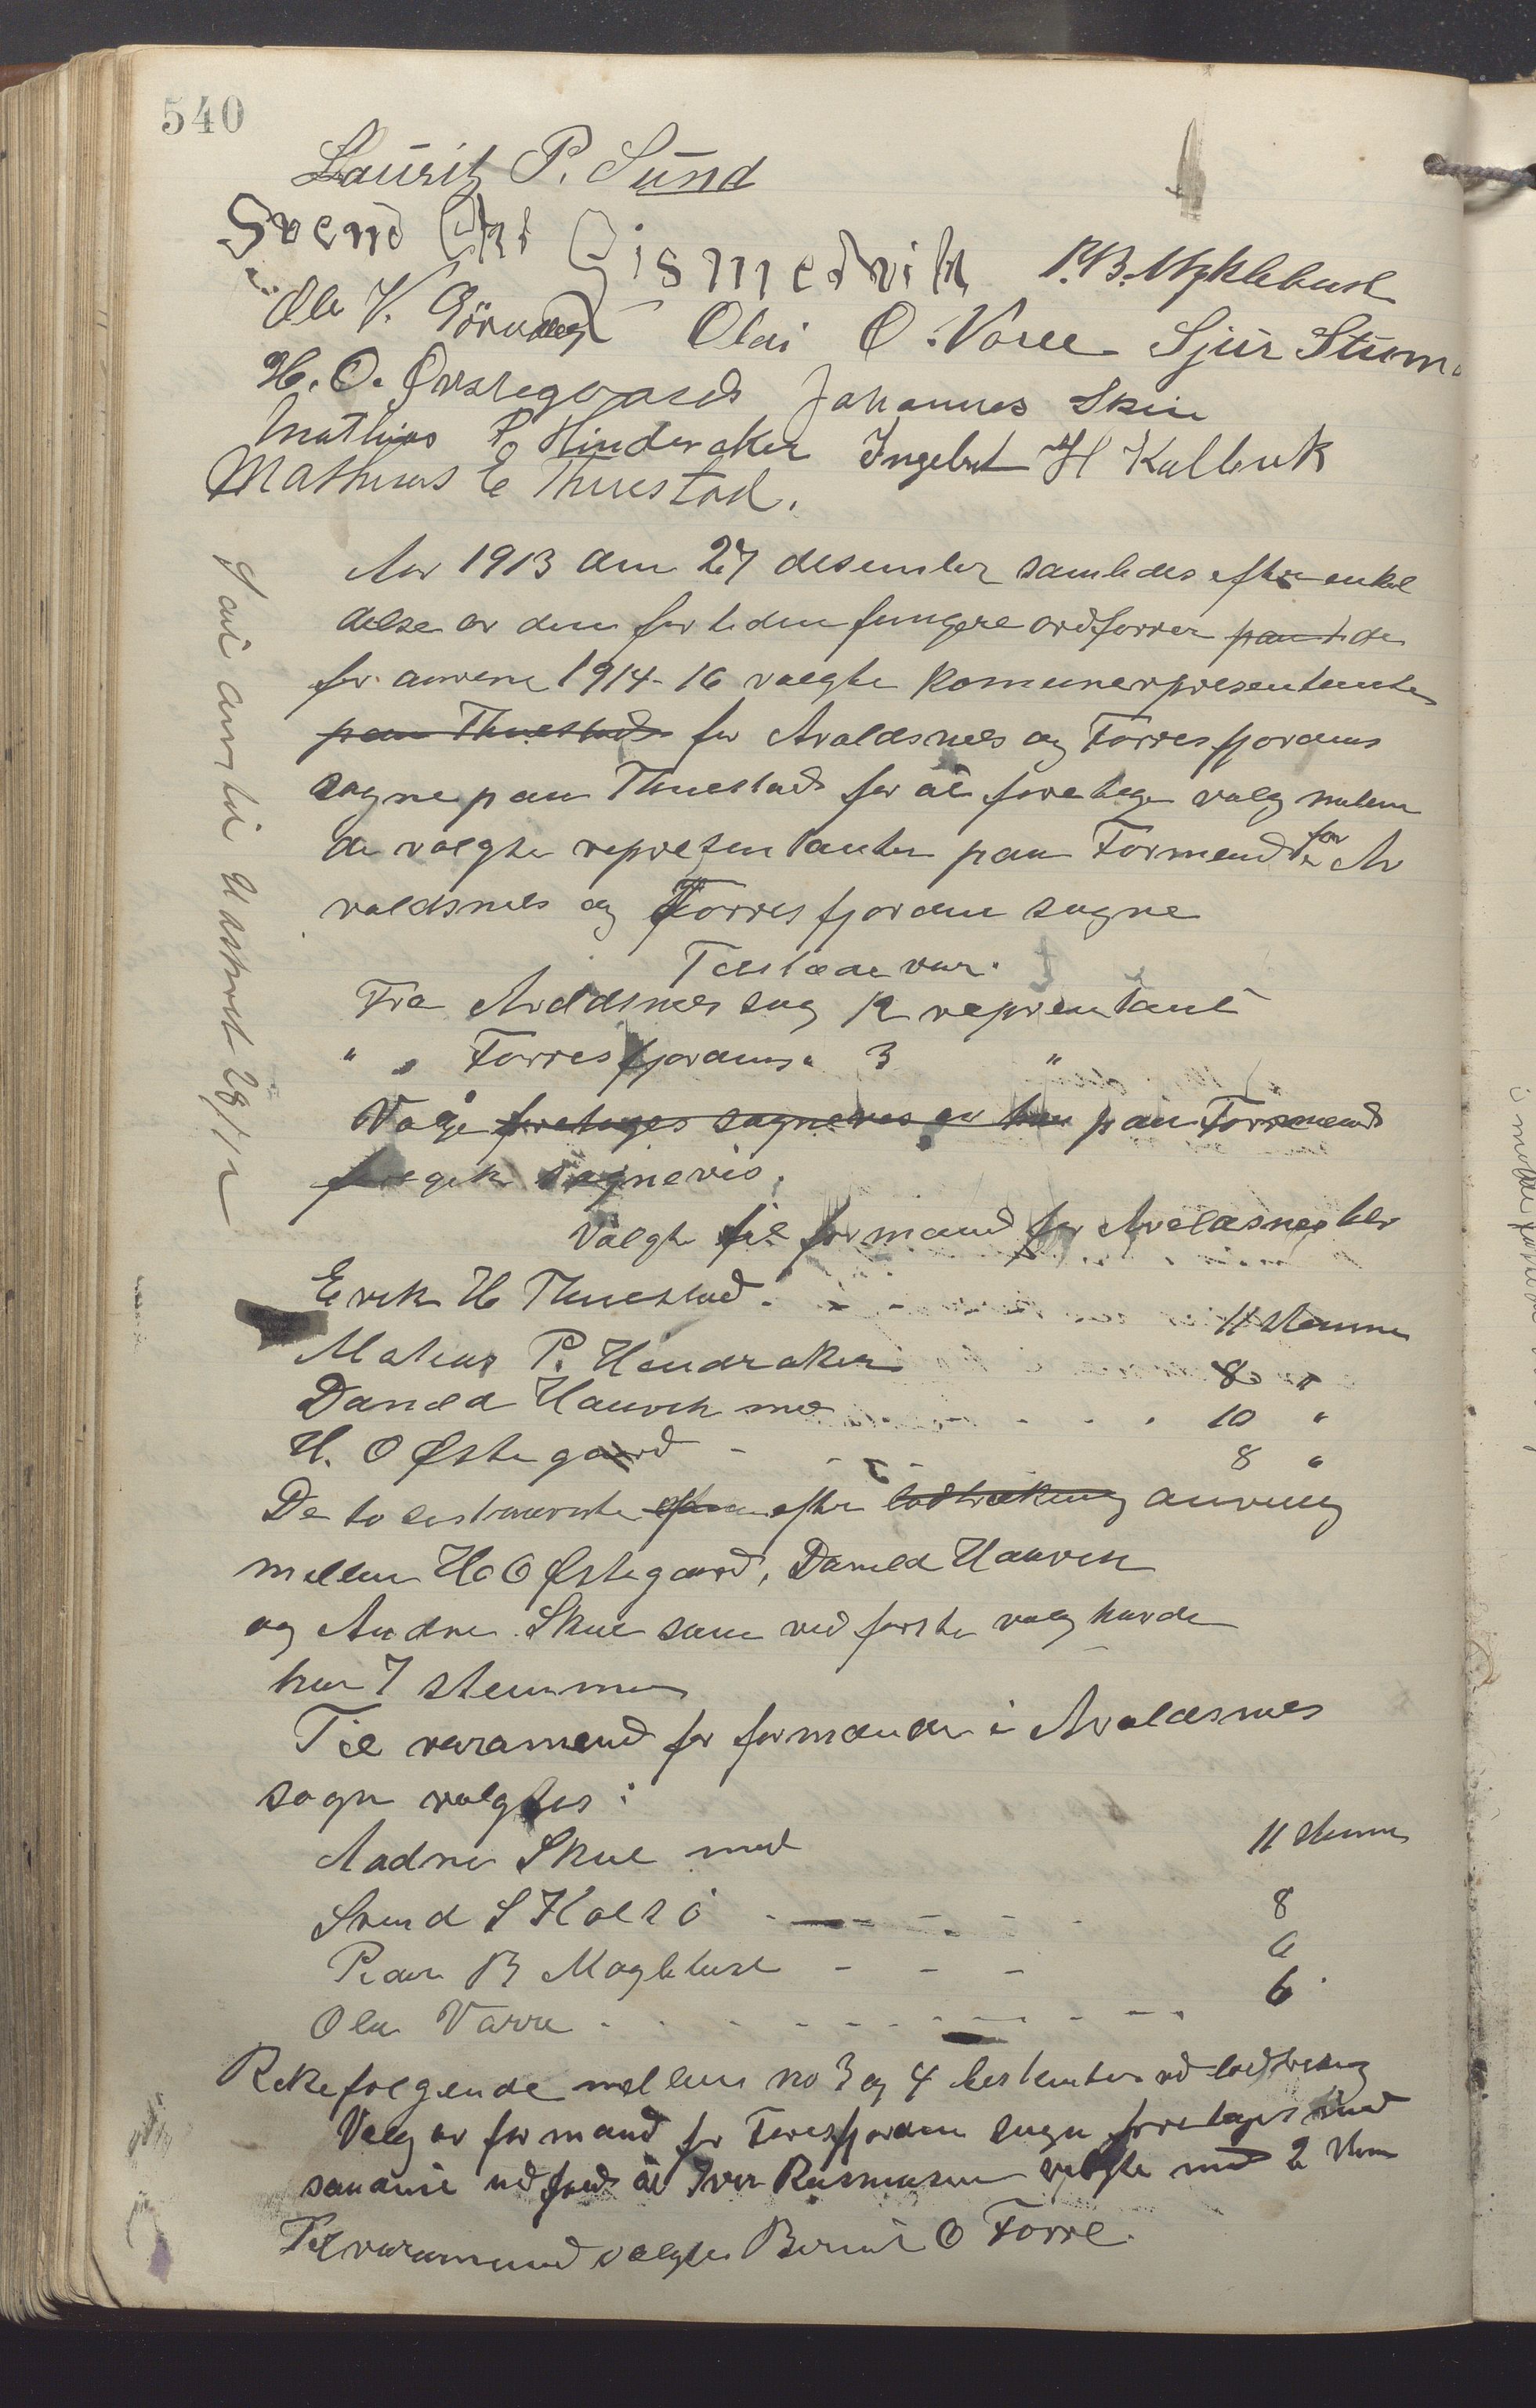 540
Lauritz P. Sund
Svend Chr Gismervik P. B. Myklebust
Ole V. Olai O. Vorre Sjur Strøm
H. O. Østregaard Johannes Skeie
Mathias P Hinderaker Ingebret H Kallevik
Mathias E Thuestad.
Aar 1913 den 27 desember samledes efter inkal
delse av den for tiden fungere ordforrer paa de
for aarene 1914-16 valgte komunerepresentanter
paa Thuestad for Avaldsnes og Torresfjordens
sogne paa Thuestad for at foretage valg mellem
de valgte representanter paa Formend for Av
valdsnes og Torresfjorden sogne
Tilstæde var.
Fra Avaldsnes sog 12 represtant
" " Torresfjordens " 3 "
Valge foretages sognevis av paa Formend
foregik sognevis.
Valgte til formænd for Avaldsnes blev
Erik H Thuestad - - - 11 stemmer
Matias P. Hinderaker 8 "
Daniel Haavik med 10 "
H. O Østegaard - - - 8 "
De to sistnævnte efter efter lodtrækning omvalg
mellem H O Østegaard, Daniel Haavik
og Andre Skeie som ved første valg havde
hver 7 stemmer
Til varamend for formænden i Avaldsnes
sogn valgtes:
Andre Skeie med 11 stemmer
Svend S Kolsö - - - 8
Peder B Møglebust - - - 6
Ola Vorre - - - 6
Rekefølgende mellem no 3 og 4 bestemtes ved lodtrekning
Valg av formand for Torresfjorden sogn foretages med
samme udfald at Iver Rasmusen valgte med 2 stem
Til varamand valgtes Bernt O Torre.
28/12